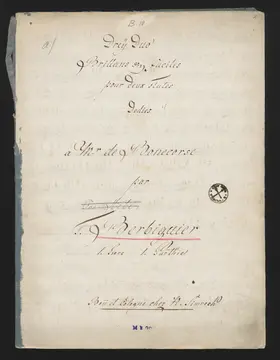 B. 10
Dreÿ Duo
Brillans en faciles
pour deux flutes
Dediées
a Mr. de Bonecorse
par
T. Berbiguier
1. Livre 1. Parthie
Bonn et Cologne chez N. Simrock